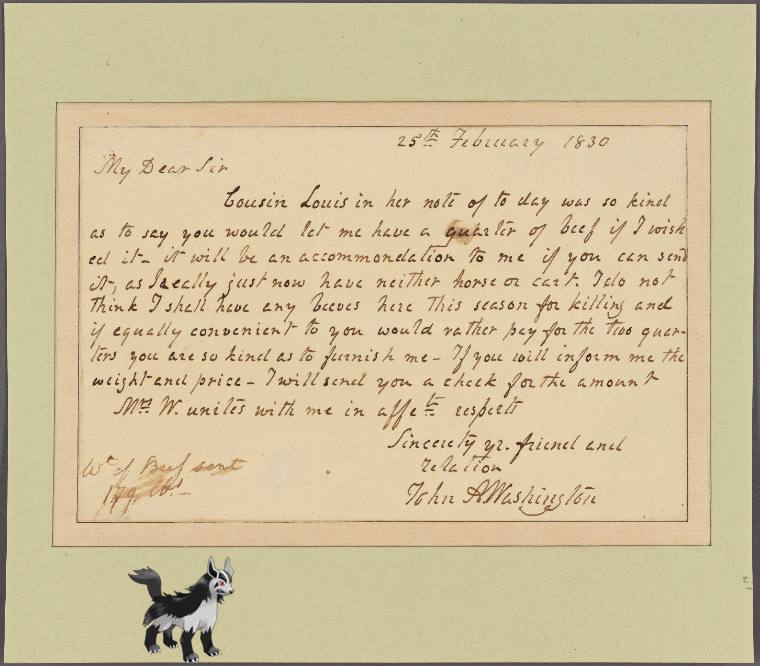 25th February 1830
My Dear Sir
Cousin Louis in her note of to day was so kind
as to say you would let me have a quarter of beef if I wish
ed it - it will be an accommondation to me if you can send
it, as I really just now have neither horse or cart. I do not
think I shall have any beeves here this season for killing and
if equally convenient to you would rather pay for the two quar-
ters you are so kind as to furnish me - If you will inform me the
weight and price - I will send you a check for the amount
Mrs W. unites with me in affete respects
Sincerely yr. friend and
relation
John A Washington
Wt of Beef sent
179 lbs -